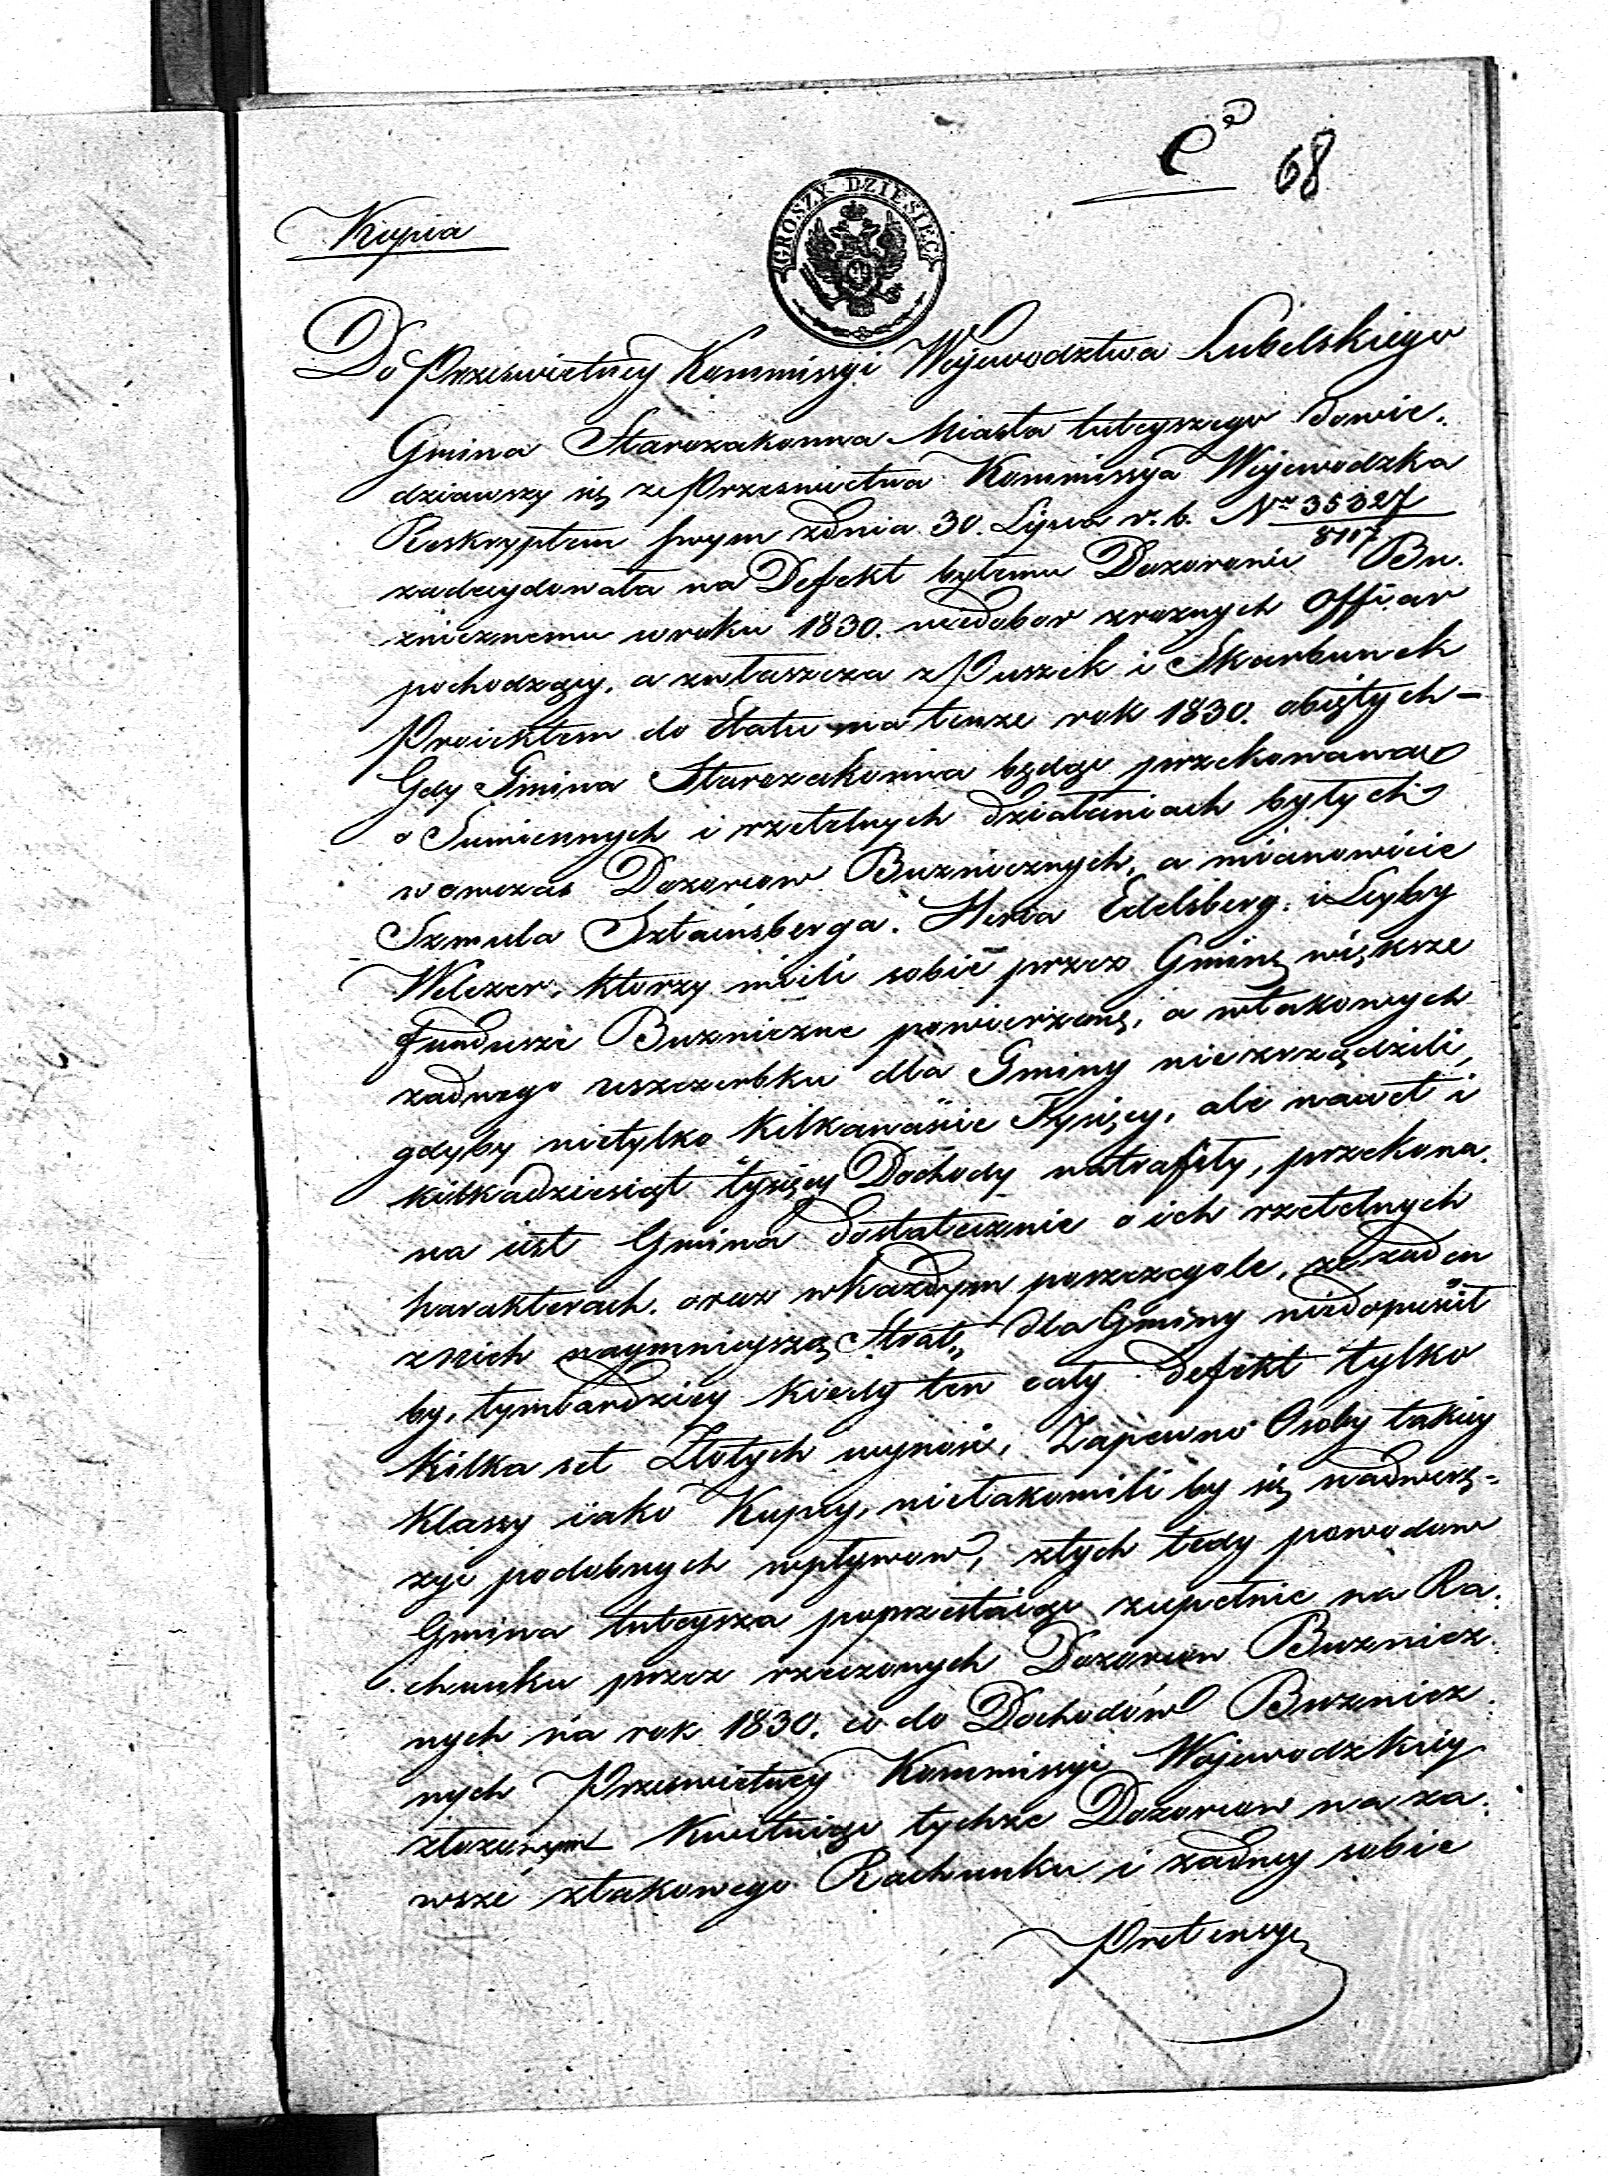 C a
68
GROSZY DZIESIĘĆ
Kopia
Do Prześwietney Kommissyi Woiewodztwa Lubelskiego
Gmina Starozakonna Miasta tuteyszego dowie-
dziawszy się że Prześwietna Kommissya Woiewodzka
Reskryptem swym z dnia 30. Lipca r. b. Nro 35327/8117
zadecydowała na Defekt byłemu Dozorowi Bu-
żnicznemu w roku 1830. niedobor z rożnych offiar
pochodzący, a zwłaszcza z Puszek i Skarbunek
Proiektem do Etatu na tenże rok 1830. obiętych –
Gdy Gmina Starozakonna będąc przekonana
o Sumiennych i rzetelnych działaniach byłych
wowczas Dozorcow Bużnicznych, a mianowicie
Szmula Sztainsberga. Herca Edelsberg. i Leyby
Welczer, ktorzy mieli sobie przez Gminę większe
fundusze Bużniczne powierzone, a w takowych
żadnego uszczerbku dla Gminy nie zrządzili,
gdyby nietylko kilkanaście Tysięcy, ale nawet i
kilkadziesiąt tysięcy Dochody natrafiły, przekona-
na iest Gmina dostatecznie o ich rzetelnych
harakterach, oraz w każdym poszczegole, że żaden
z nich naymnieyszą Stratę dla Gminy niedopuścił
by, tymbardziey kiedy ten cały defekt tylko
kilka set Złotych wynosi, Zapewne Osoby takiey
Klassy iako Kupcy, niełakomili by się nadwerę-
żyć podobnych wpływow, z tych tedy powodow
Gmina tuteysza poprzestaiąc zupełnie na Ra-
chunku przez rzeczonych Dozorcow Bużnicz-
nych na rok 1830. co do Dochodów Bużnicz-
nych Prześwietney Kommissyi Woiewodzkiey
złożonym Kwituiąc tychże Dozorcow na za-
wsze z takowego Rachunku i żadney sobie
Pretensyi